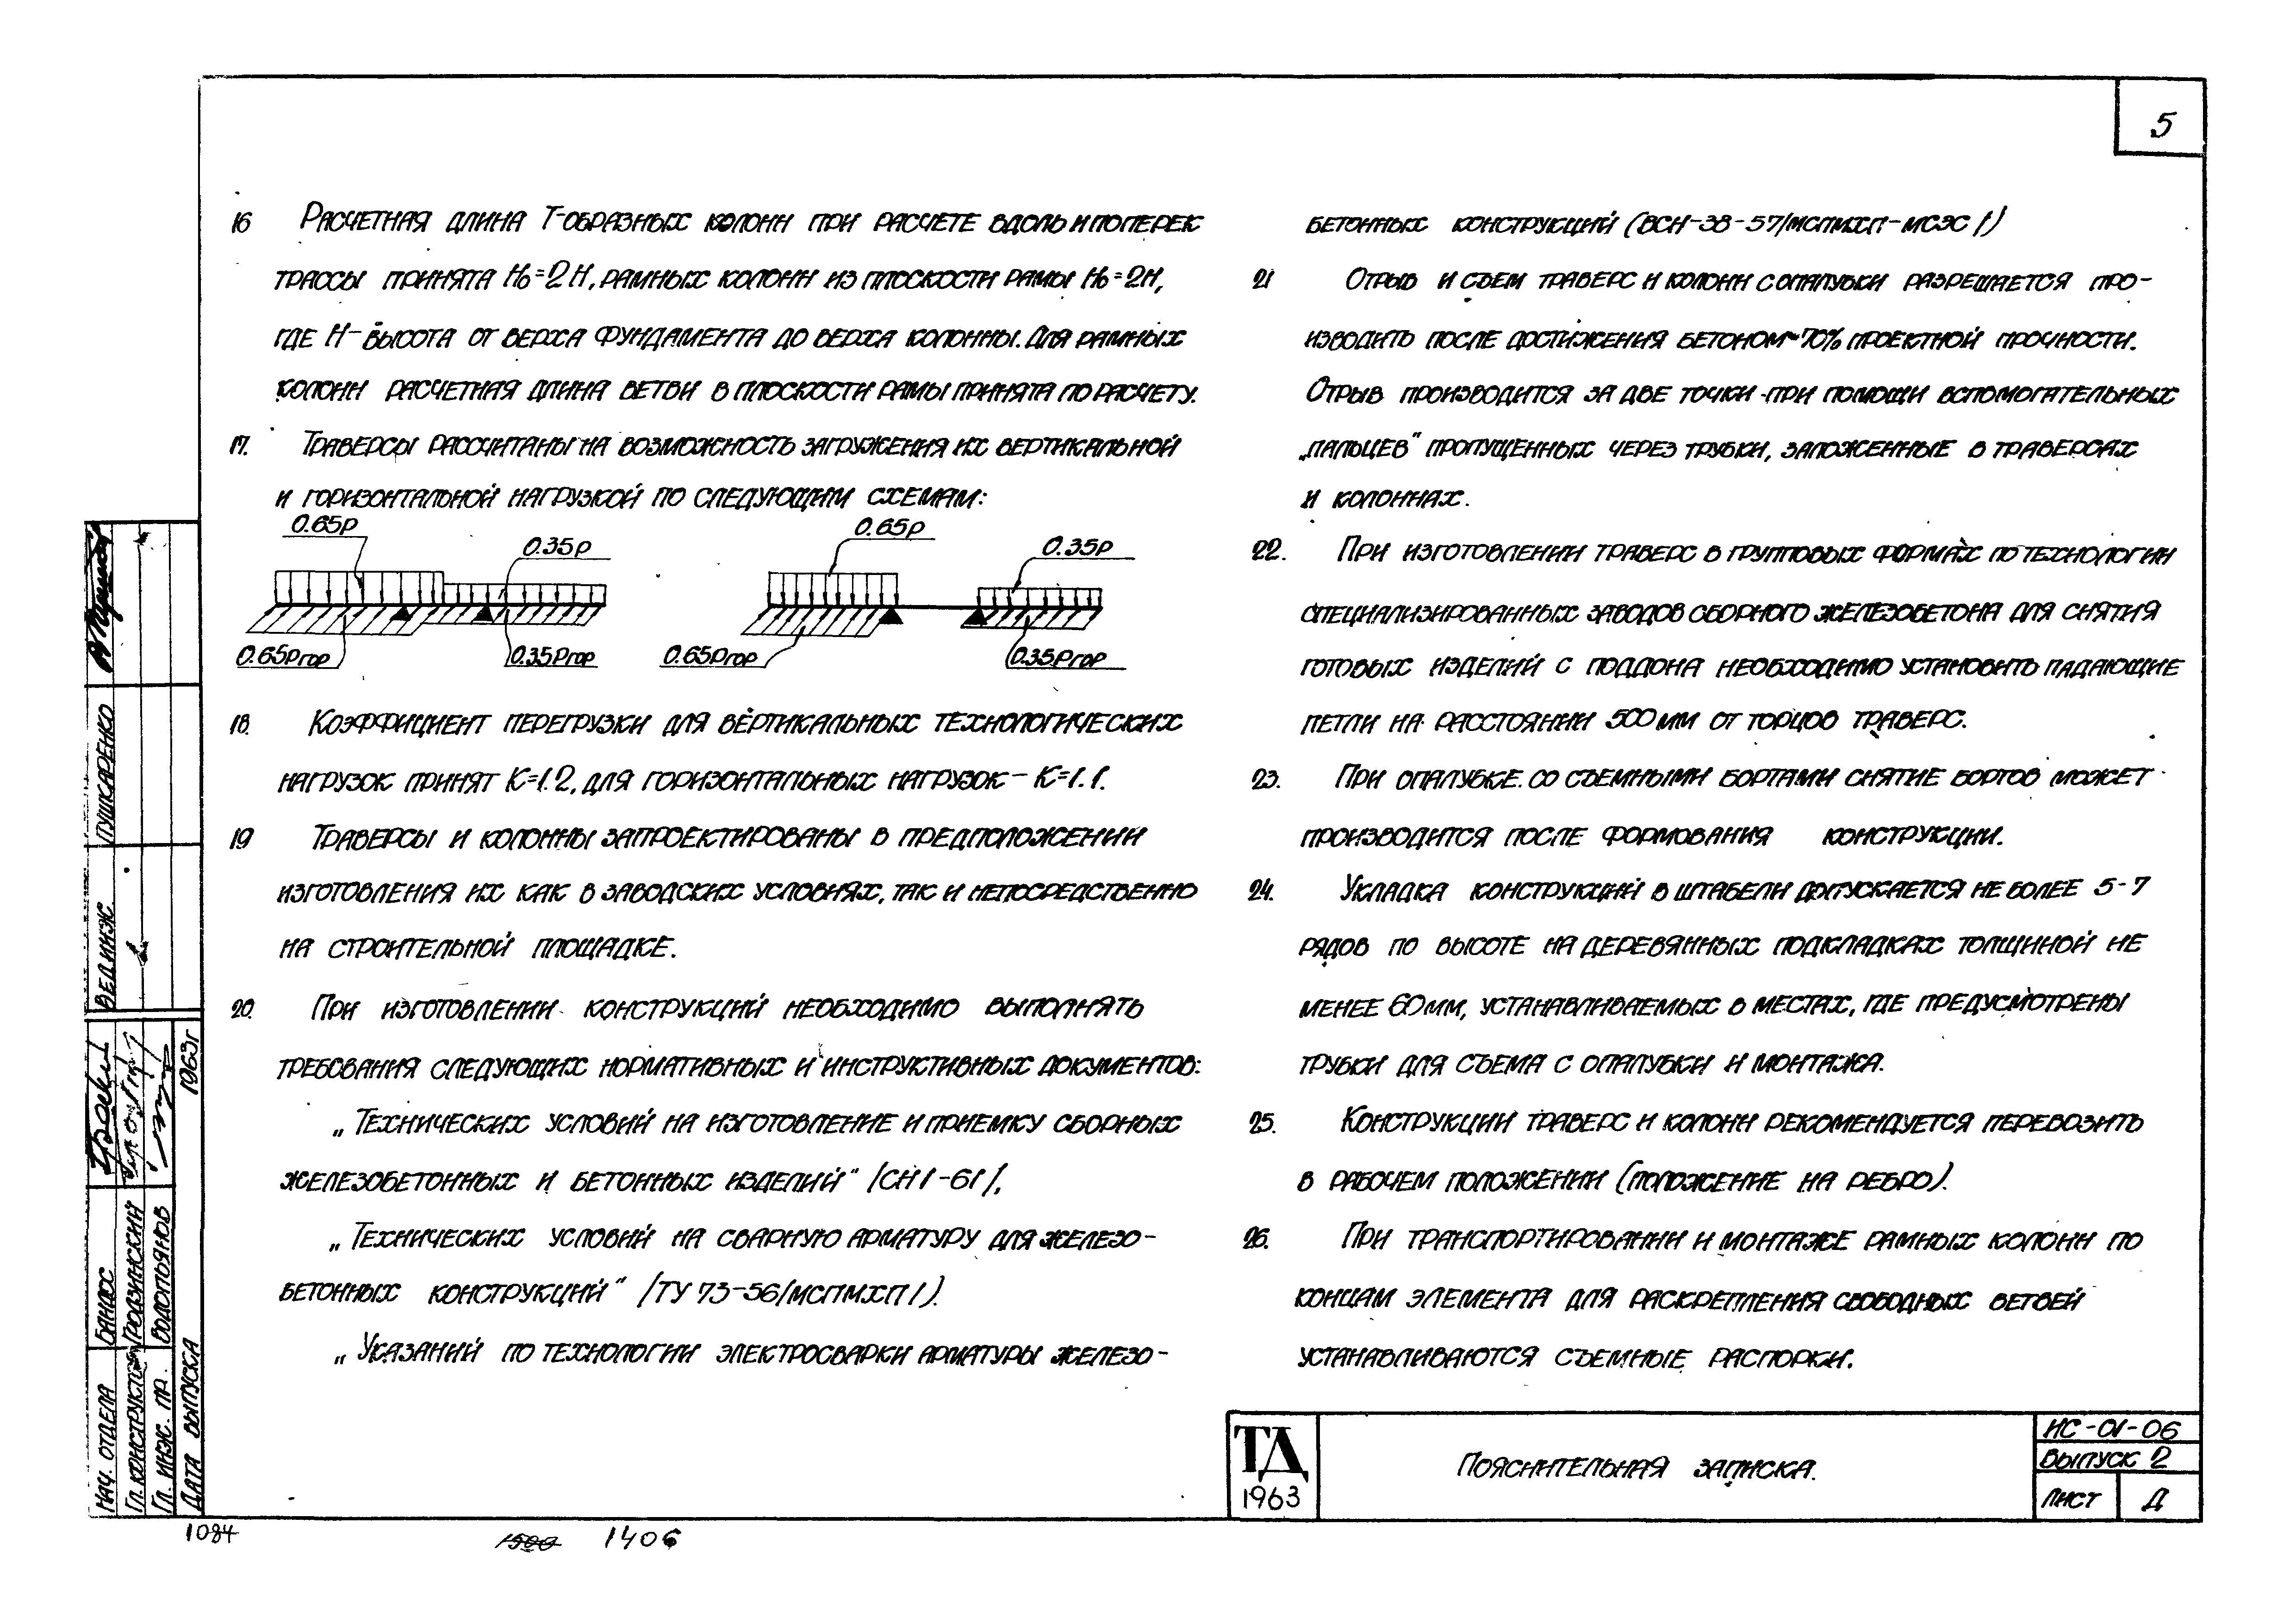 5
16 Расчетная длина Т-образных колонн при расчете вдоль и поперек
трассы принята H₀=2H, рамных колонн из плоскости рамы H₀=2H,
где H- высота от верха фундамента до верха колонны. Для рамных
колонн расчетная длина ветви в плоскости рамы принята по расчету.
17. Траверсы рассчитаны на возможность загружения их вертикальной
и горизонтальной нагрузкой по следующим схемам:
0.65р 0.35р 0.65р 0.35р
0.65Ргор 0.35Ргор 0.65Ргор 0.35Ргор
18. Коэффициент перегрузки для вертикальных технологических
нагрузок принят К=1.2, для горизонтальных нагрузок - К=1.1.
19 Траверсы и колонны запроектированы в предположении
изготовления их как в заводских условиях, так и непосредственно
на строительной площадке.
20. При изготовлении конструкций необходимо выполнять
требования следующих нормативных и инструктивных документов:
„Технических условий на изготовление и приемку сборных
железобетонных и бетонных изделий" /СН 1-61/,
„Технических условий на сварную арматуру для железо-
бетонных конструкций" /ТУ 73-56/МСПМХП/).
„Указаний по технологии электросварки арматуры железо-
бетонных конструкций (ВСН-38-57/МСПМХП-МСЭС/)
21 Отрыв и съем траверс и колонн с опалубки разрешается про-
изводить после достижения бетоном ~70% проектной прочности.
Отрыв производится за две точки при помощи вспомогательных
„пальцев" пропущенных через трубки, заложенные в траверсах
и колоннах.
22. При изготовлении траверс в групповых формах по технологии
специализированных заводов сборного железобетона для снятия
готовых изделий с поддона необходимо установить падающие
петли на расстоянии 500мм от торцов траверс.
23. При опалубке со съемными бортами снятие бортов может
производится после формования конструкции.
24. Укладка конструкций в штабели допускается не более 5-7
рядов по высоте на деревянных подкладках толщиной не
менее 60мм, устанавливаемых в местах, где предусмотрены
трубки для съема с опалубки и монтажа.
25. Конструкции траверс и колонн рекомендуется перевозить
в рабочем положении (положение на ребро).
26. При транспортировании и монтаже рамных колонн по
концам элемента для раскрепления свободных ветвей
устанавливаются съемные распорки.
ТД
1963
Пояснительная записка.
ИС-01-06
Выпуск 2
Лист Д
Вед.инж. Пушкаренко
Нач. отдела Бандос
Гл. конструктор Гродзинский
Гл. инж. пр. Водопьянов
Дата выпуска 1963г
1084
1406